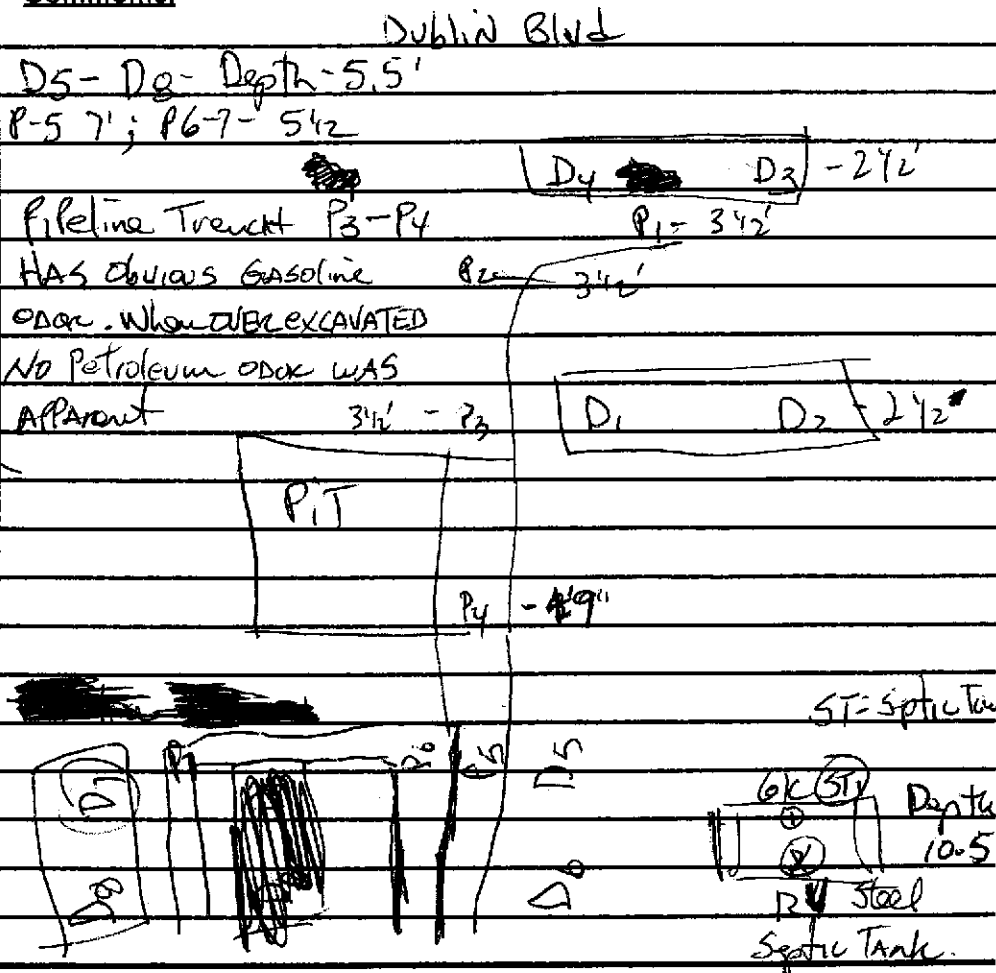 Comments:
Dublin Blvd
D5- D8- Depth-5.5'
P-5 7'; P6-7- 5 1/2
D4 D3 - 2 1/2'
Pipeline Trencht P3-P4
P1- 3 1/2'
HAS Obvious GASoline
P2 3 1/2'
ODOR. When OVER EXCAVATED
NO Petroleum ODOR WAS
APPArent
3 1/2' - P3
D1 D2 - 2 1/2"
PiT
P4 - 9"
ST = Septic Tan
P6 P5 D5
D8 D6
6K ST1
Depth
10.5
Steel
Septic TANK.